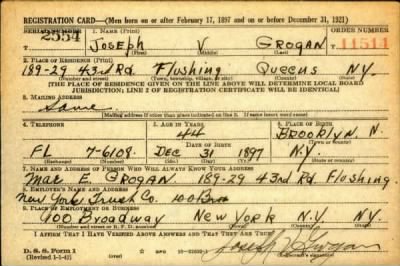 REGISTRATION CARD—(Men born on or after February 17, 1897 and on or before December 31, 1921)
SERIAL NUMBER 1. NAME (Print) ORDER NUMBER
2554 JOSEPH V GROGAN 11511
(First) (Middle) (Last)
2. PLACE OF RESIDENCE (Print)
189-29 43rd Rd. Flushing Queens N.Y.
(Number and street) (Town, township, village, or city) (County) (State)
[THE PLACE OF RESIDENCE GIVEN ON THE LINE ABOVE WILL DETERMINE LOCAL BOARD
JURISDICTION; LINE 2 OF REGISTRATION CERTIFICATE WILL BE IDENTICAL]
3. MAILING ADDRESS
Same
4. TELEPHONE 5. AGE IN YEARS 6. PLACE OF BIRTH
44 BROOKLYN, N.
DATE OF BIRTH
FL 7-6108 DEC 31 1897 N.Y.
(Exchange) (Number) (Mo.) (Day) (Yr.) (State or country)
7. NAME AND ADDRESS OF PERSON WHO WILL ALWAYS KNOW YOUR ADDRESS
Mae E. GROGAN 189-29 43rd Rd. Flushing
8. EMPLOYER'S NAME AND ADDRESS
New York Trust Co. 100 Bro
9. PLACE OF EMPLOYMENT OR BUSINESS
100 Broadway New York N.Y. NY
(Number and street or R. F. D. number) (Town) (County) (State)
I AFFIRM THAT I HAVE VERIFIED ABOVE ANSWERS AND THAT THEY ARE TRUE.
D. S. S. Form 1
(Revised 1-1-42) Joseph V Grogan